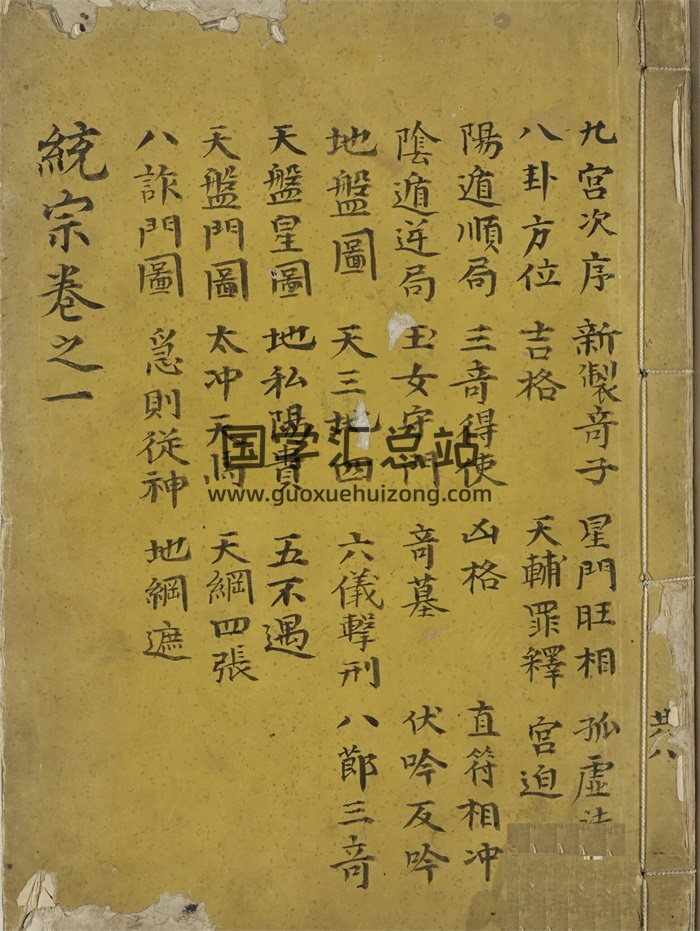 九宫次序 新製竒子 星門旺相 孤虛
八卦方位 吉格 天輔罪釋 宫迫
陽遁順局 三竒得使 凶格 直符相冲
陰遁逆局 玉女守門 竒墓 伏吟反吟
地盤圖 天三地四 六儀擊刑 八節三竒
天盤星圖 地私陽貴 五不遇
天盤門圖 太冲天馬 天綱四張
八詐門圖 急則從神 地綱遮
統宗卷之一
共八
国学汇总站
www.guoxuehuizong.com